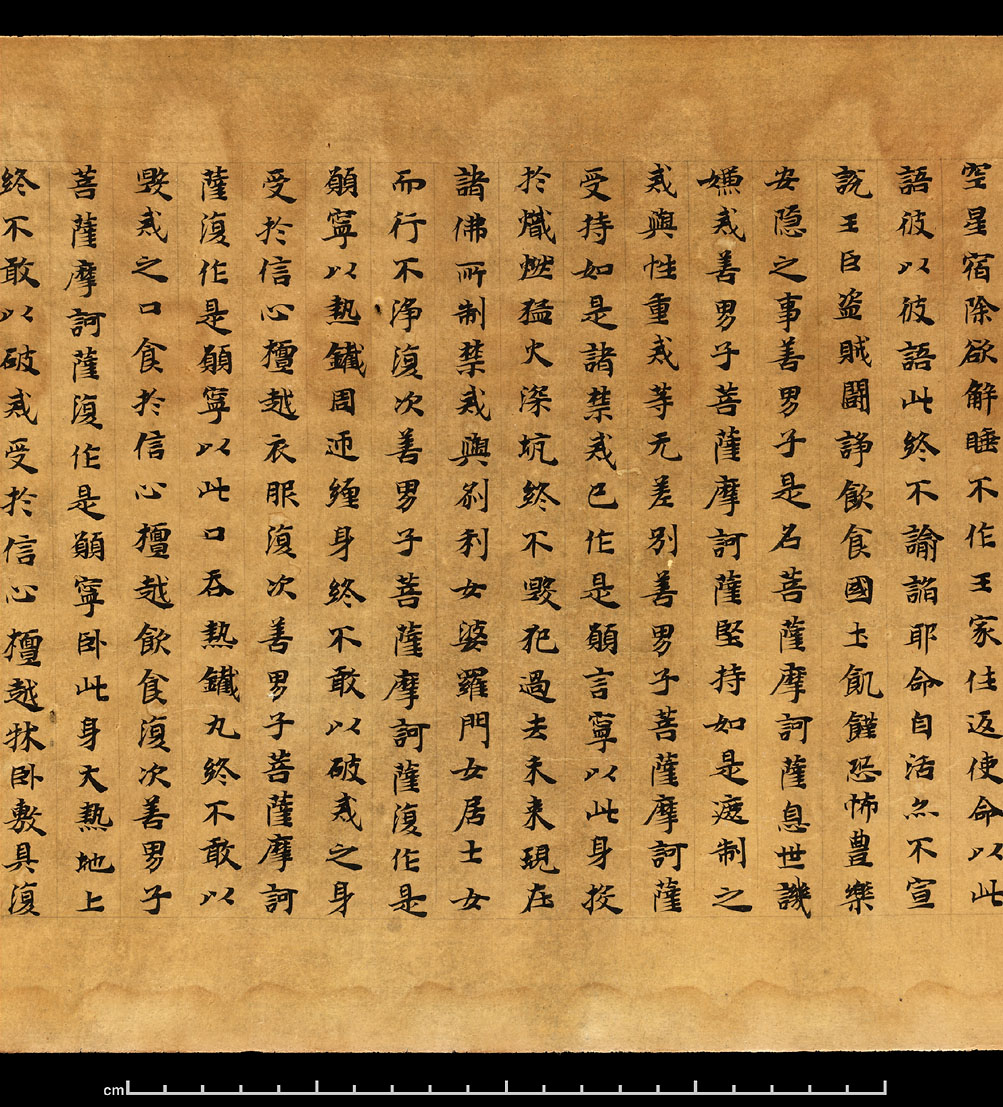 空星宿除欲解睡不作王家往返使命以此
語彼以彼語此終不諭諂耶命自活亦不宣
說王臣盜賊鬪諍飲食國土飢饉恐怖豊樂
安隱之事善男子是名菩薩摩訶薩息世譏
嫌戒善男子菩薩摩訶薩堅持如是遮制之
戒與性重戒等无差別善男子菩薩摩訶薩
受持如是諸禁戒已作是願言寧以此身投
於熾燃猛火深坑終不毀犯過去未来現在
諸佛所制禁戒與刹利女婆羅門女居士女
而行不淨復次善男子菩薩摩訶薩復作是
願寧以熱鐵周迊纏身終不敢以破戒之身
受於信心檀越衣服復次善男子菩薩摩訶
薩復作是願寧以此口吞熱鐵丸終不敢以
毀戒之口食於信心檀越飲食復次善男子
菩薩摩訶薩復作是願寧卧此身大熱地上
終不敢以破戒受於信心檀越牀卧敷具復